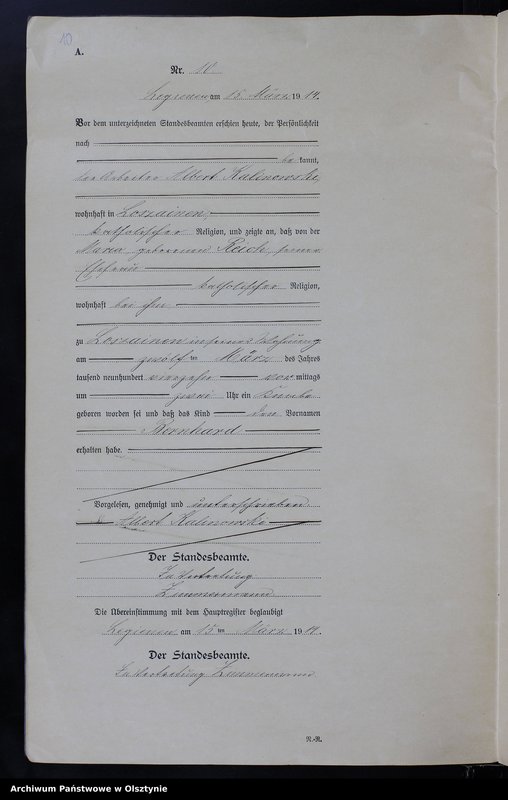 10
A.
Nr. 10
Legienen am 15. März 1914.
Vor dem unterzeichneten Standesbeamten erschien heute, der Persönlichkeit
nach
be kannt,
der Arbeiter Albert Kalinowski,
wohnhaft in Loszainen,
katholischer Religion, und zeigte an, daß von der
Maria geborenen Reich, seiner
Ehefrau
katholischer Religion,
wohnhaft bei ihm
zu Loszainen in seiner Wohnung
am zwölf ten März des Jahres
tausend neunhundert vierzehn vor mittags
um zwei Uhr ein Knabe
geboren worden sei und daß das Kind den Vornamen
Bernhard
erhalten habe.
Vorgelesen, genehmigt und unterschrieben
Albert Kalinowski
Der Standesbeamte.
In Vertretung
Zimmermann
Die Übereinstimmung mit dem Hauptregister beglaubigt
Legienen am 15 ten März 1914.
Der Standesbeamte.
In Vertretung Zimmermann
R.-R.
Archiwum Państwowe w Olsztynie